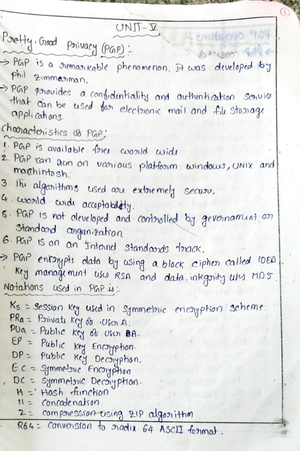 UNIT-V
Pretty-Good Privacy (PGP):-
→ PGP is a remarkable phenomenon. It was developed by
Phil Zimmerman.
→ PGP provides a confidentiality and authentication service
that can be used for electronic mail and file storage
applications.
Characteristics of PGP:
1. PGP is available free world wide
2. PGP can run on various platform windows, UNIX and
macthintosh.
3. Its algorithms used are extremely secure.
4. world wide acceptability.
5. PGP is not developed and controlled by governament or
standard organization.
6. PGP is on an Internet standards track.
→ PGP encrypts data by using a block cipher called IDEA
Key management uses RSA and data integrity uses MD5.
Notations used in PGP is:
Ks = session key used in symmetric encryption scheme
PRa = Private key of user A.
PUa = Public key of user A.
EP = Public key Encryption.
DP = Public key Decryption.
EC = Symmetric Encryption
DC = Symmetric Decryption.
H = Hash function
|| = Concatenation
Z = compression using ZIP algorithm
R64 = Conversion to radix 64 ASCII format.